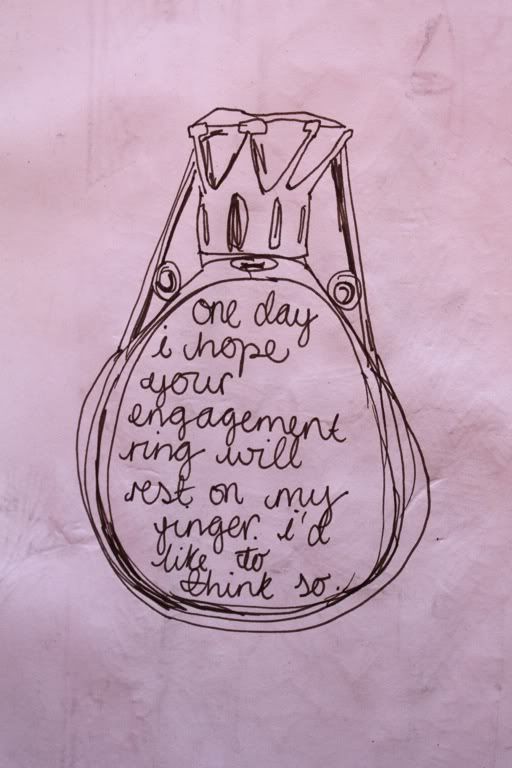 one day
i hope
your
engagement
ring will
rest on my
finger. i'd
like to
think so.